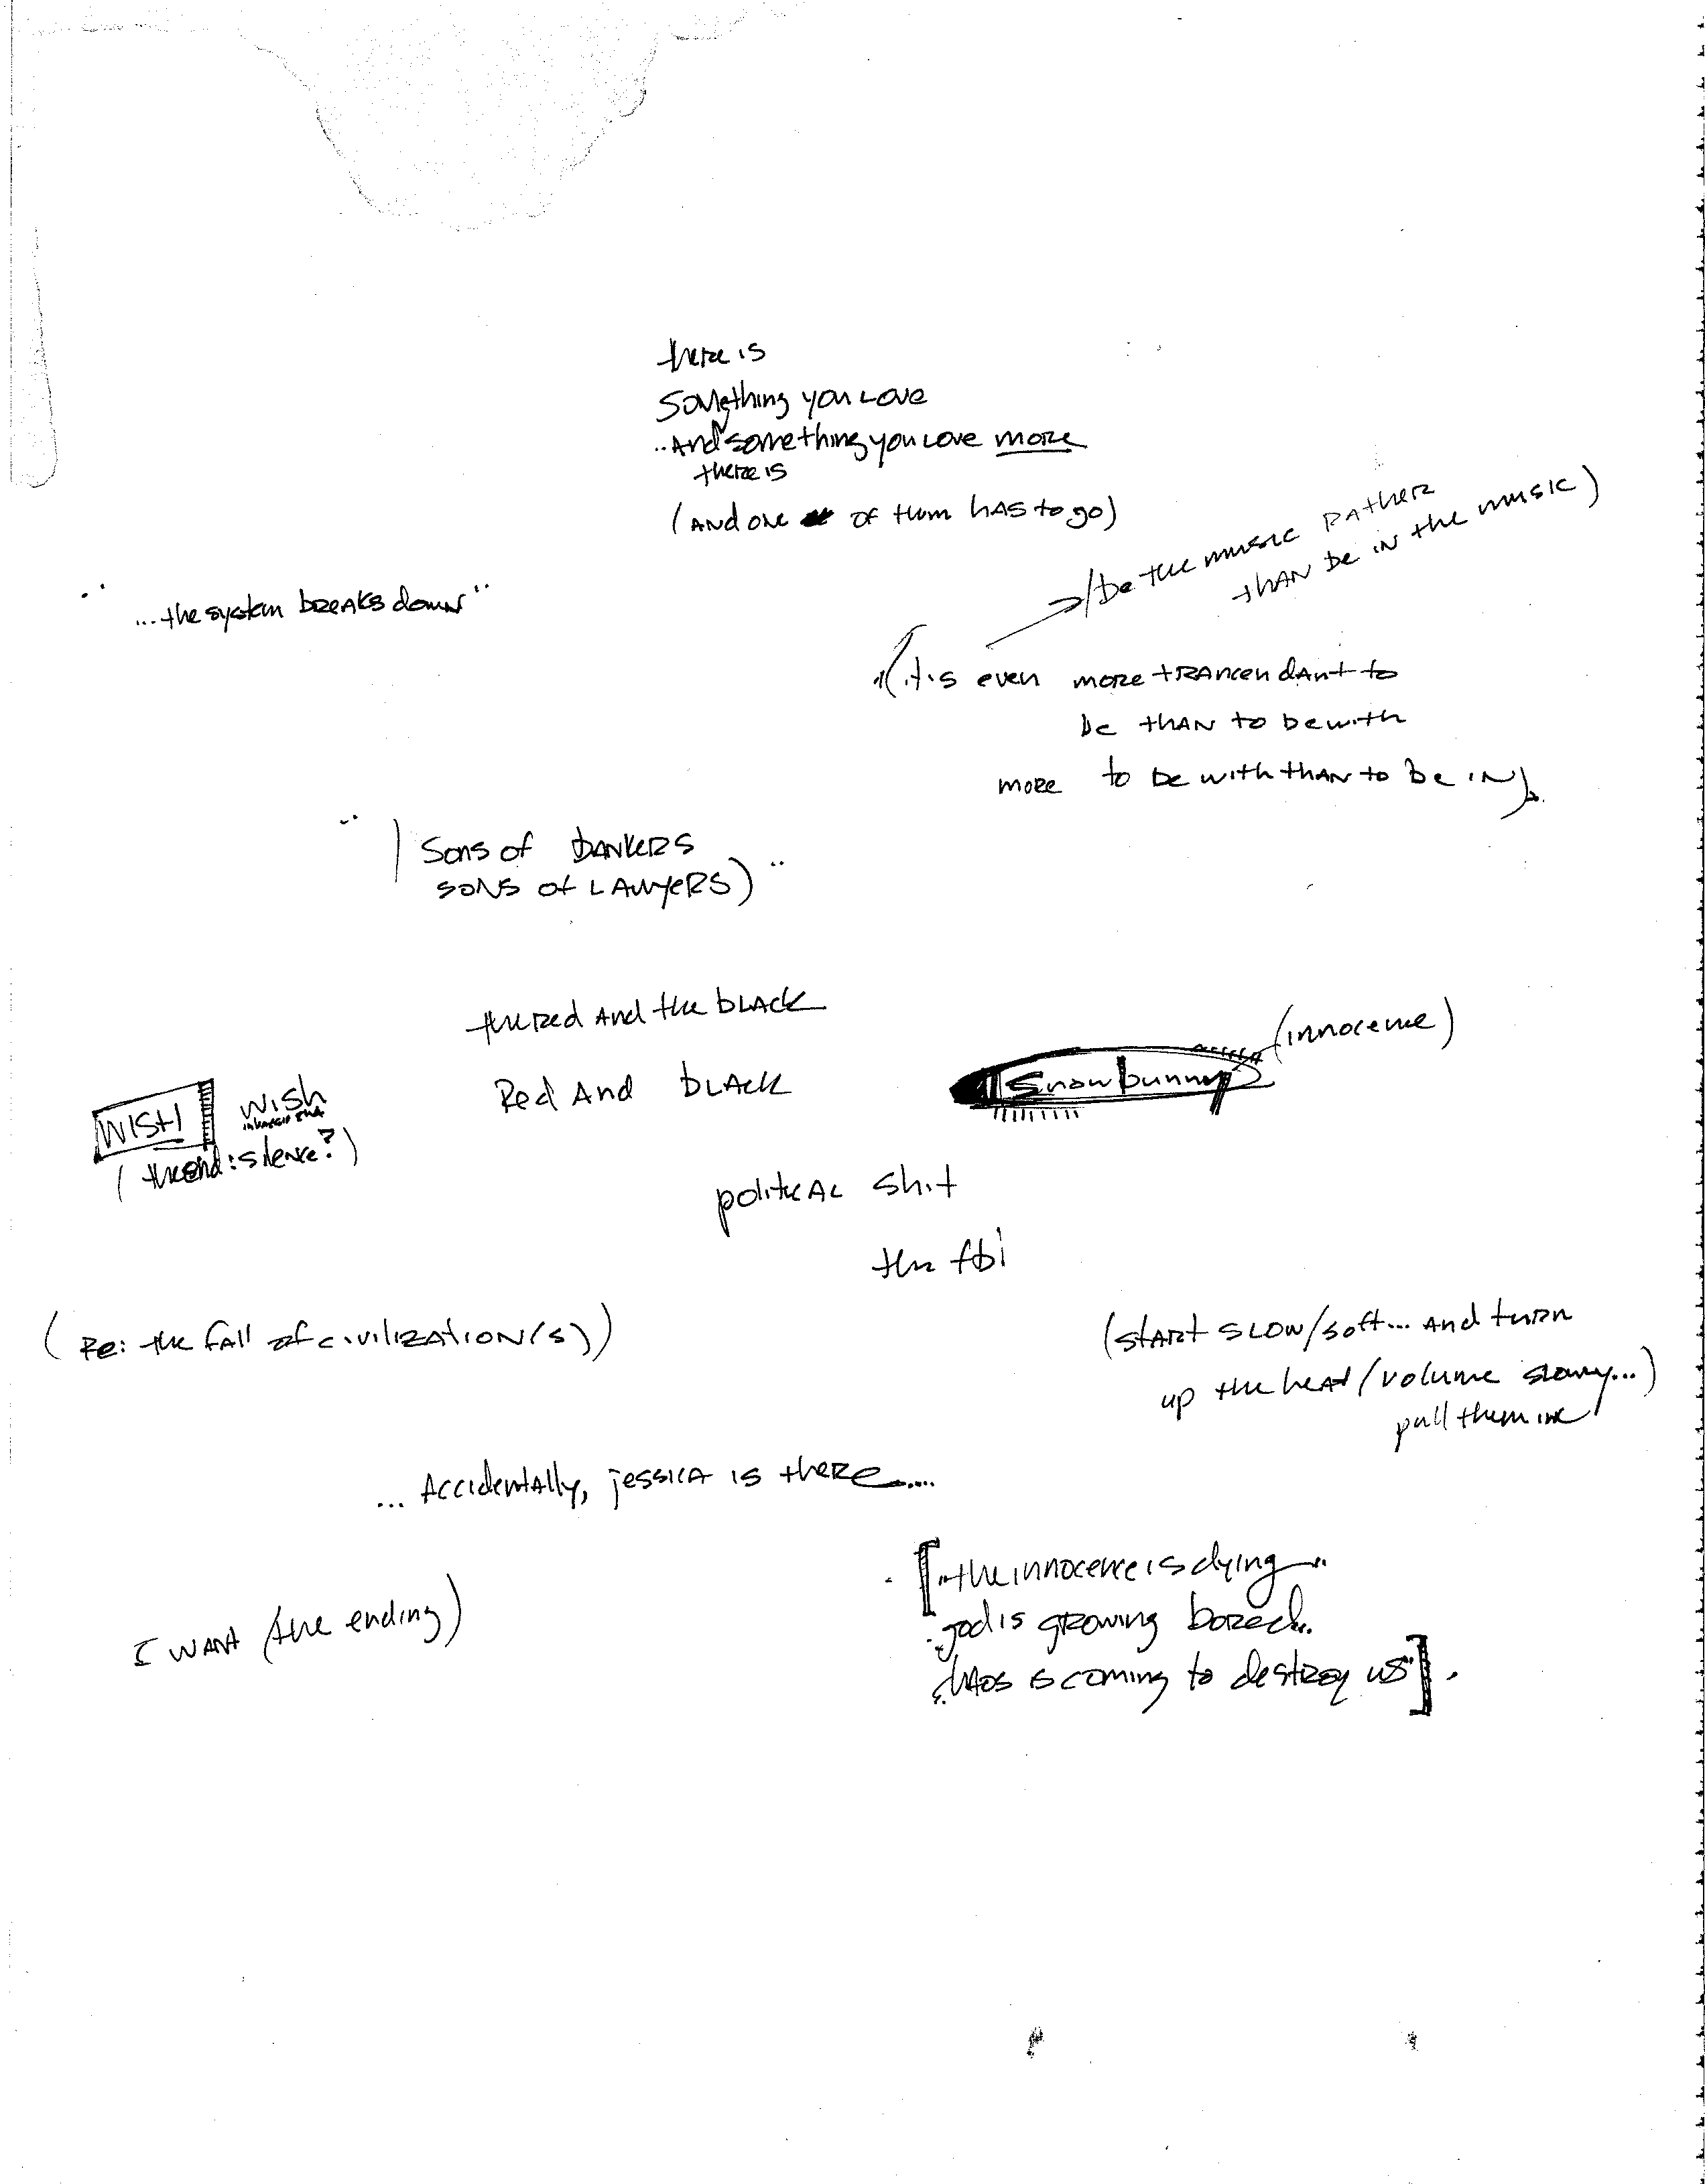 there is
Something you Love
..And something you Love more
there is
(And one of them hAs to go)
(be the music Rather
thAN be in the music)
"...the system bReaks down"
(it is even more tRAncendAnt to
be thAN to be with
more to be with thAN to be iN).
"(Sons of bANkeRS
sons of LAwyeRS)"
the Red And the bLAck
Red And bLAck
(innocence)
Snowbunny
WISH
wish
(the end: silence?)
politicAL shit
the fbi
(Re: the fall of civiliZAtion(s))
(stARt sLow/soft... And turn
up the heAt/volume slowly...)
pull them in
... Accidentally, jessicA is theRe....
[..the innocence is dying...
..god is gRowing boRed..
chAos is coming to destRoy us"].
I WANt (the ending)